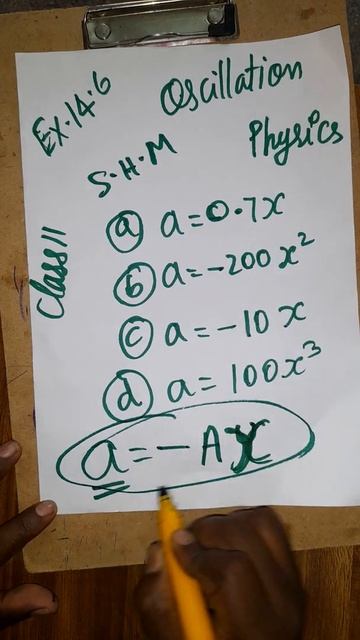 Ex.14.6
Oscillation
Physics
S.H.M
Class 11
(a) a=0.7x
(b) a=-200x²
(c) a=-10x
(d) a=100x³
a=-Ax